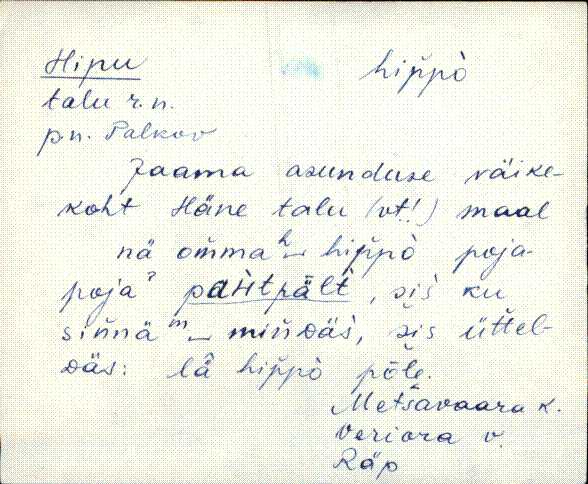 Hipu hip̆pò
talu r.n.
p.n. Palkov
Jaama asunduse väike-
koht Häne talu (vt!) maal
nä om̆ma ʰ‿ hip̆pò poja-
poja ˀ pärìt pält, sìs ku
siňnä ᵐ‿ miňdäs, sìs üt̆tel-
däs: lâ hip̆pò pōle.
Metsavaara k.
Veriora v.
Räp